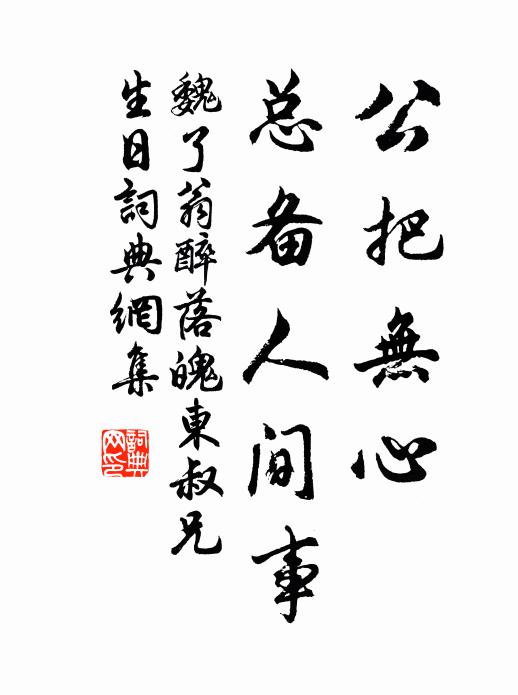 公把無心
总备人间事
魏了翁醉落魄東叔兄
生日詞典網集
詞典网印